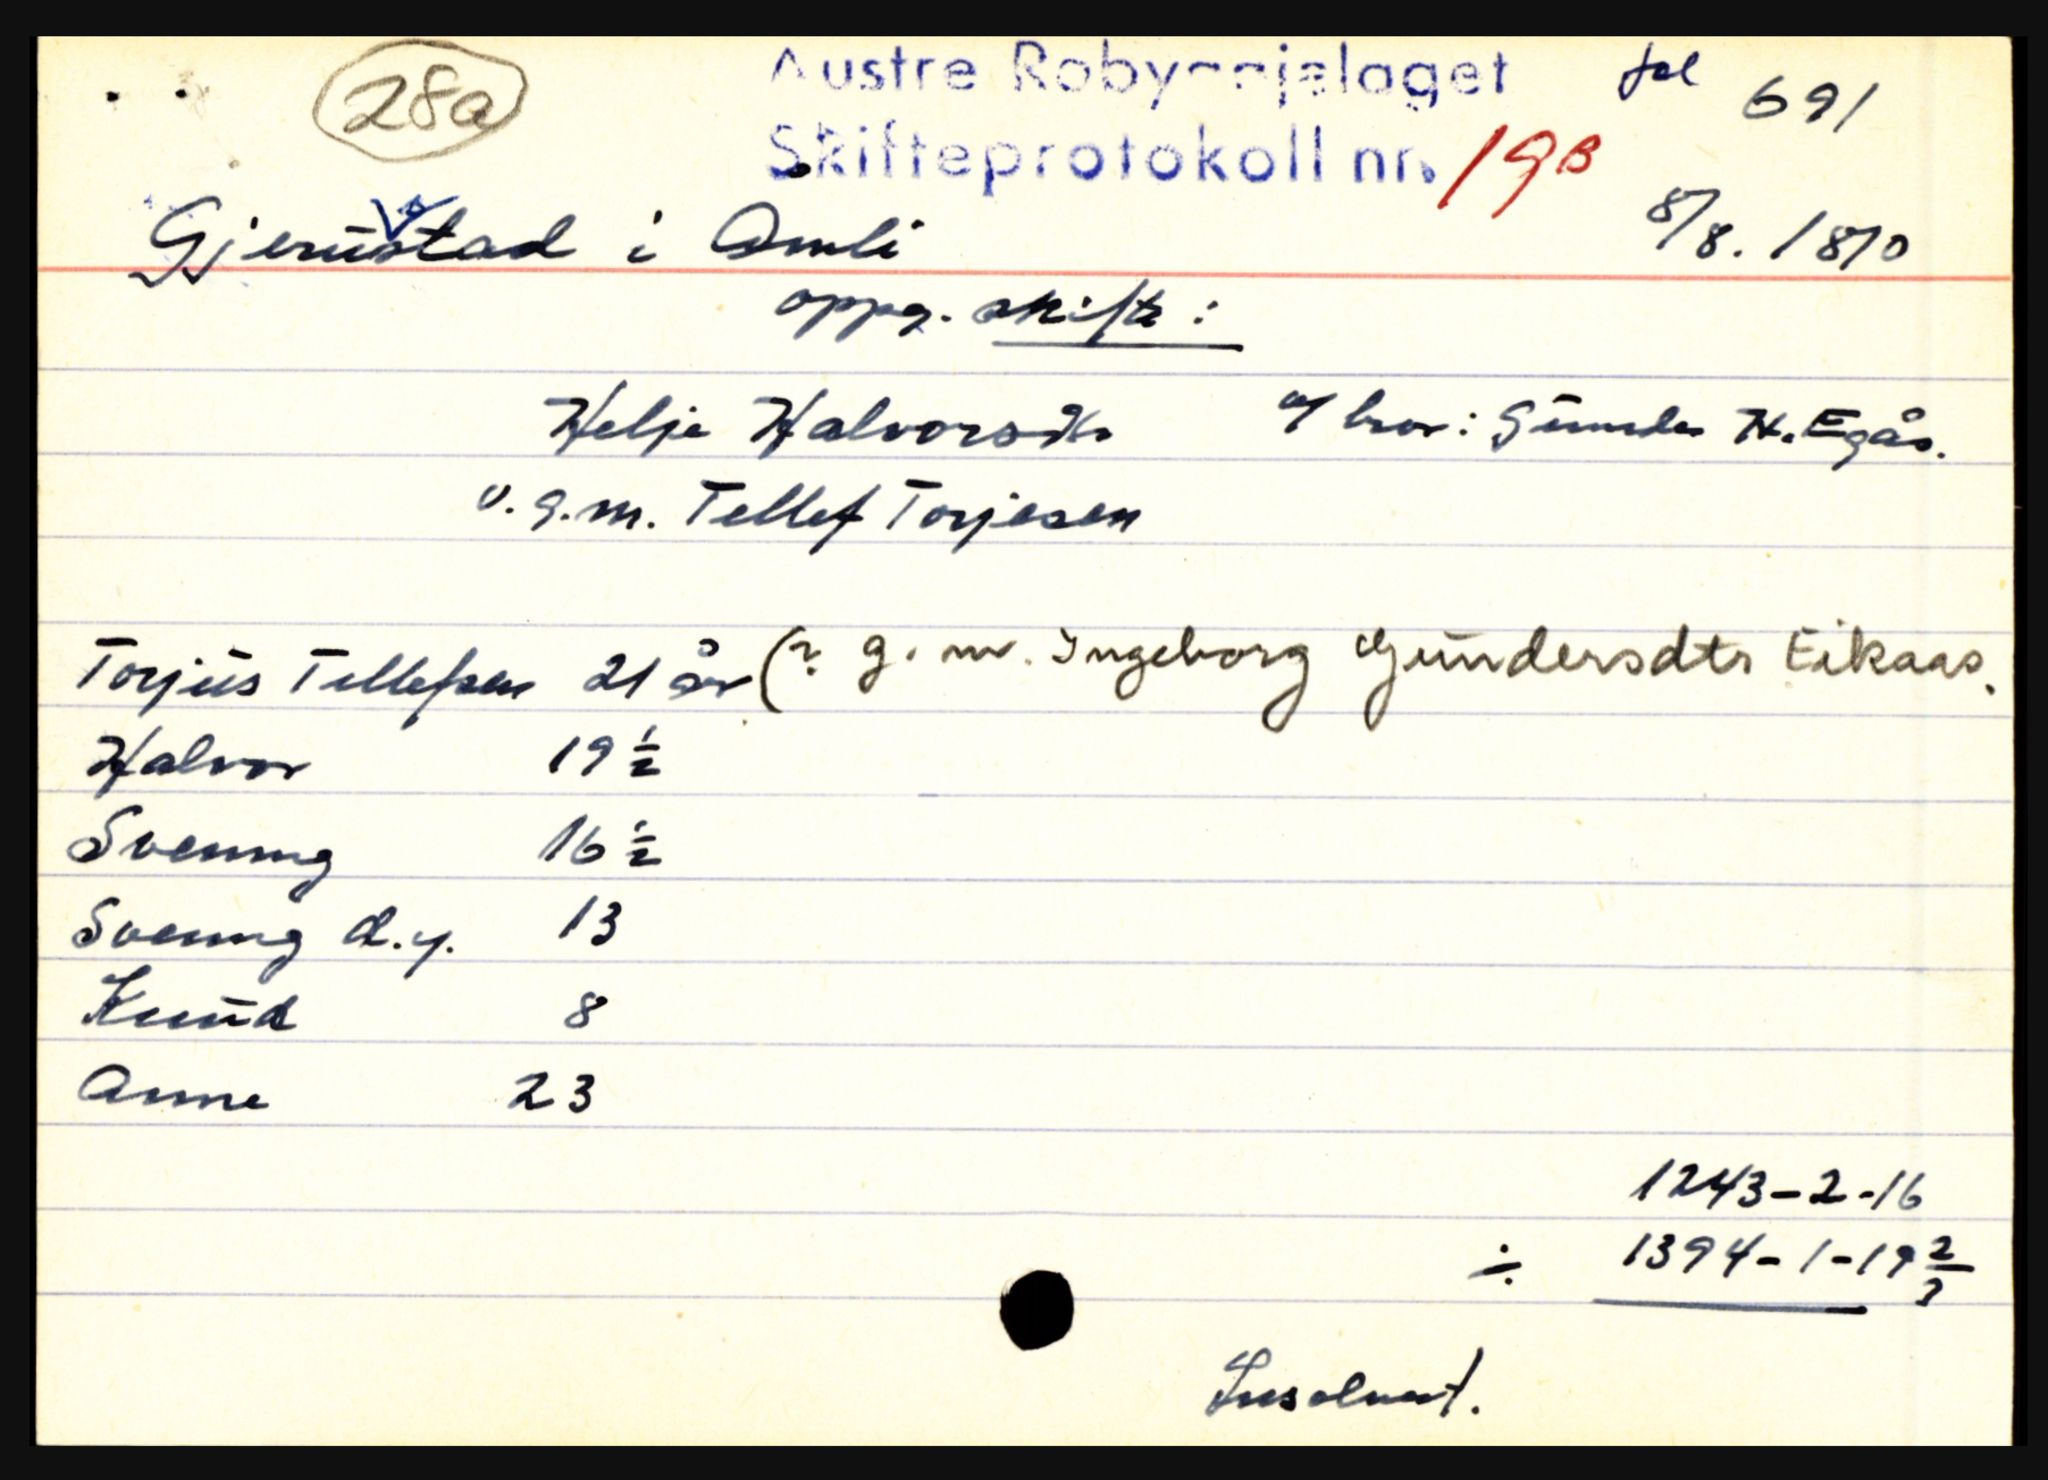 28a
Austre Robyggjelaget fol 691
Skifteprotokoll nr. 19B
Gjerustad i Amli 8/8. 1870
oppg. skifte:
Helje Halvorsdtr v/ bror: Gunder H. Egås.
v. g.m. Tellef Torjesen
Torjus Tellefsen 21 år (? g. m. Ingeborg Gundersdtr Eikaas.
Halvor 19 1/2
Svenung 16 1/2
Svenung d.y. 13
Knud 8
Anne 23
1243-2-16
÷ 1394-1-19 2/3
Insolvent.